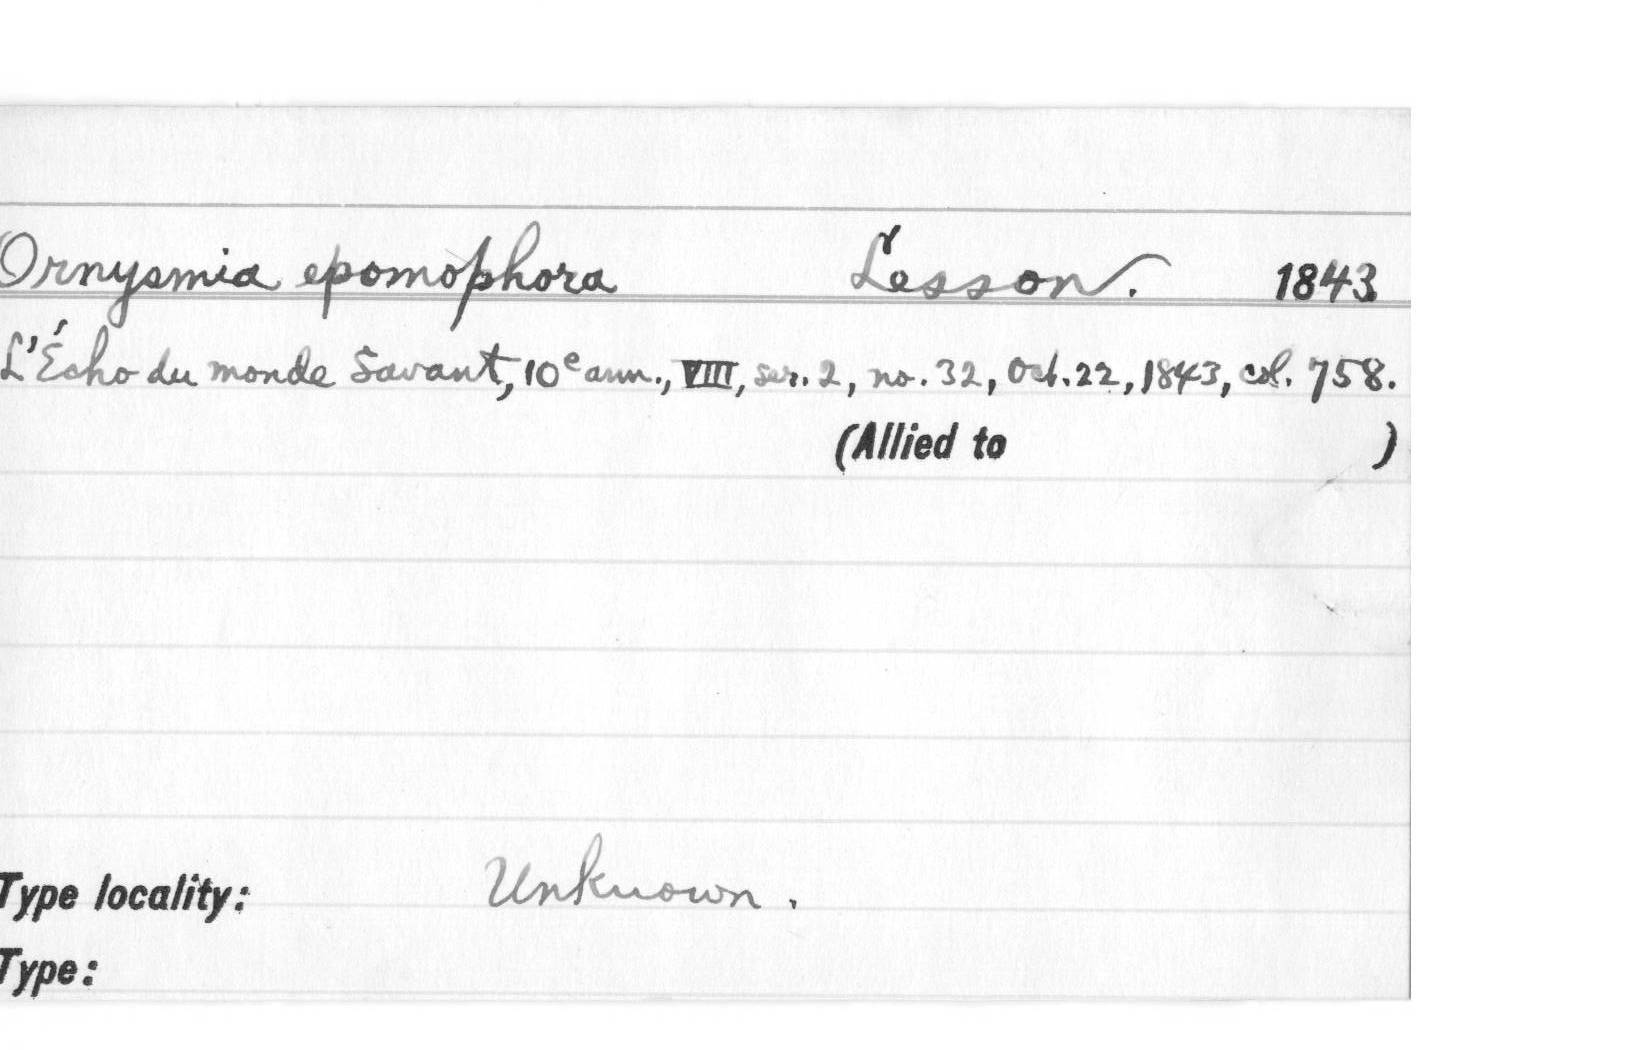 Ornysmia epomophora Lesson. 1843
L'Écho du monde Savant, 10e ann., VIII, ser. 2, no. 32, Oct. 22, 1843, col. 758.
(Allied to )
Type locality: Unknown.
Type: